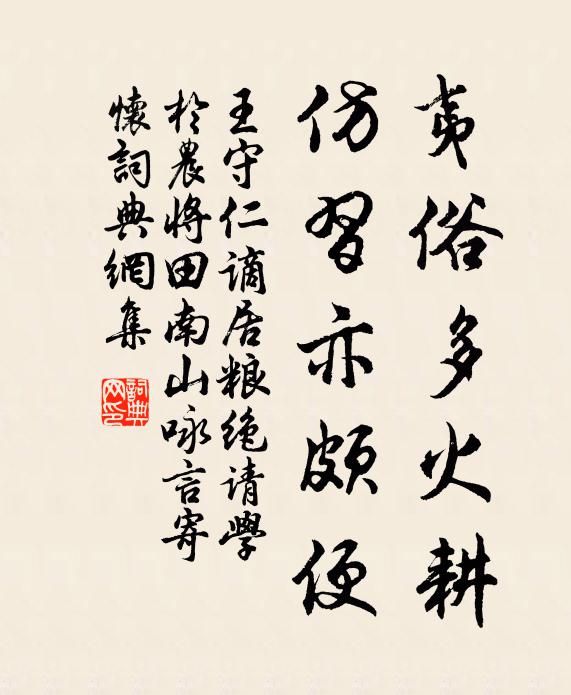 夷俗多火耕
仿習亦頗便
王守仁謫居粮絶请學
於農将田南山咏言寄
懷詞典網集
詞典网印